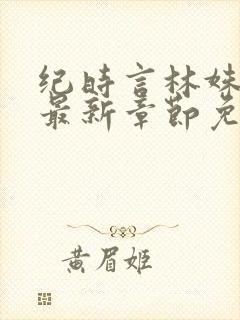 纪时言林妹
最新章节免
黄眉姬